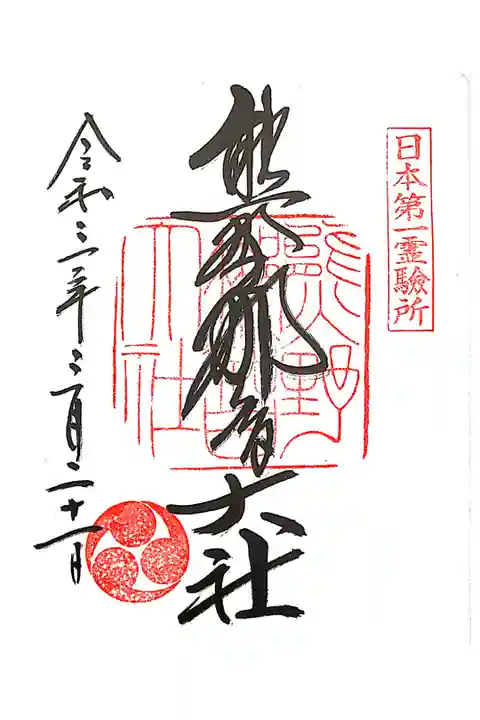 日本第一霊驗所
熊野那智大社
熊野
那智
大社
令和三年二月二十一日